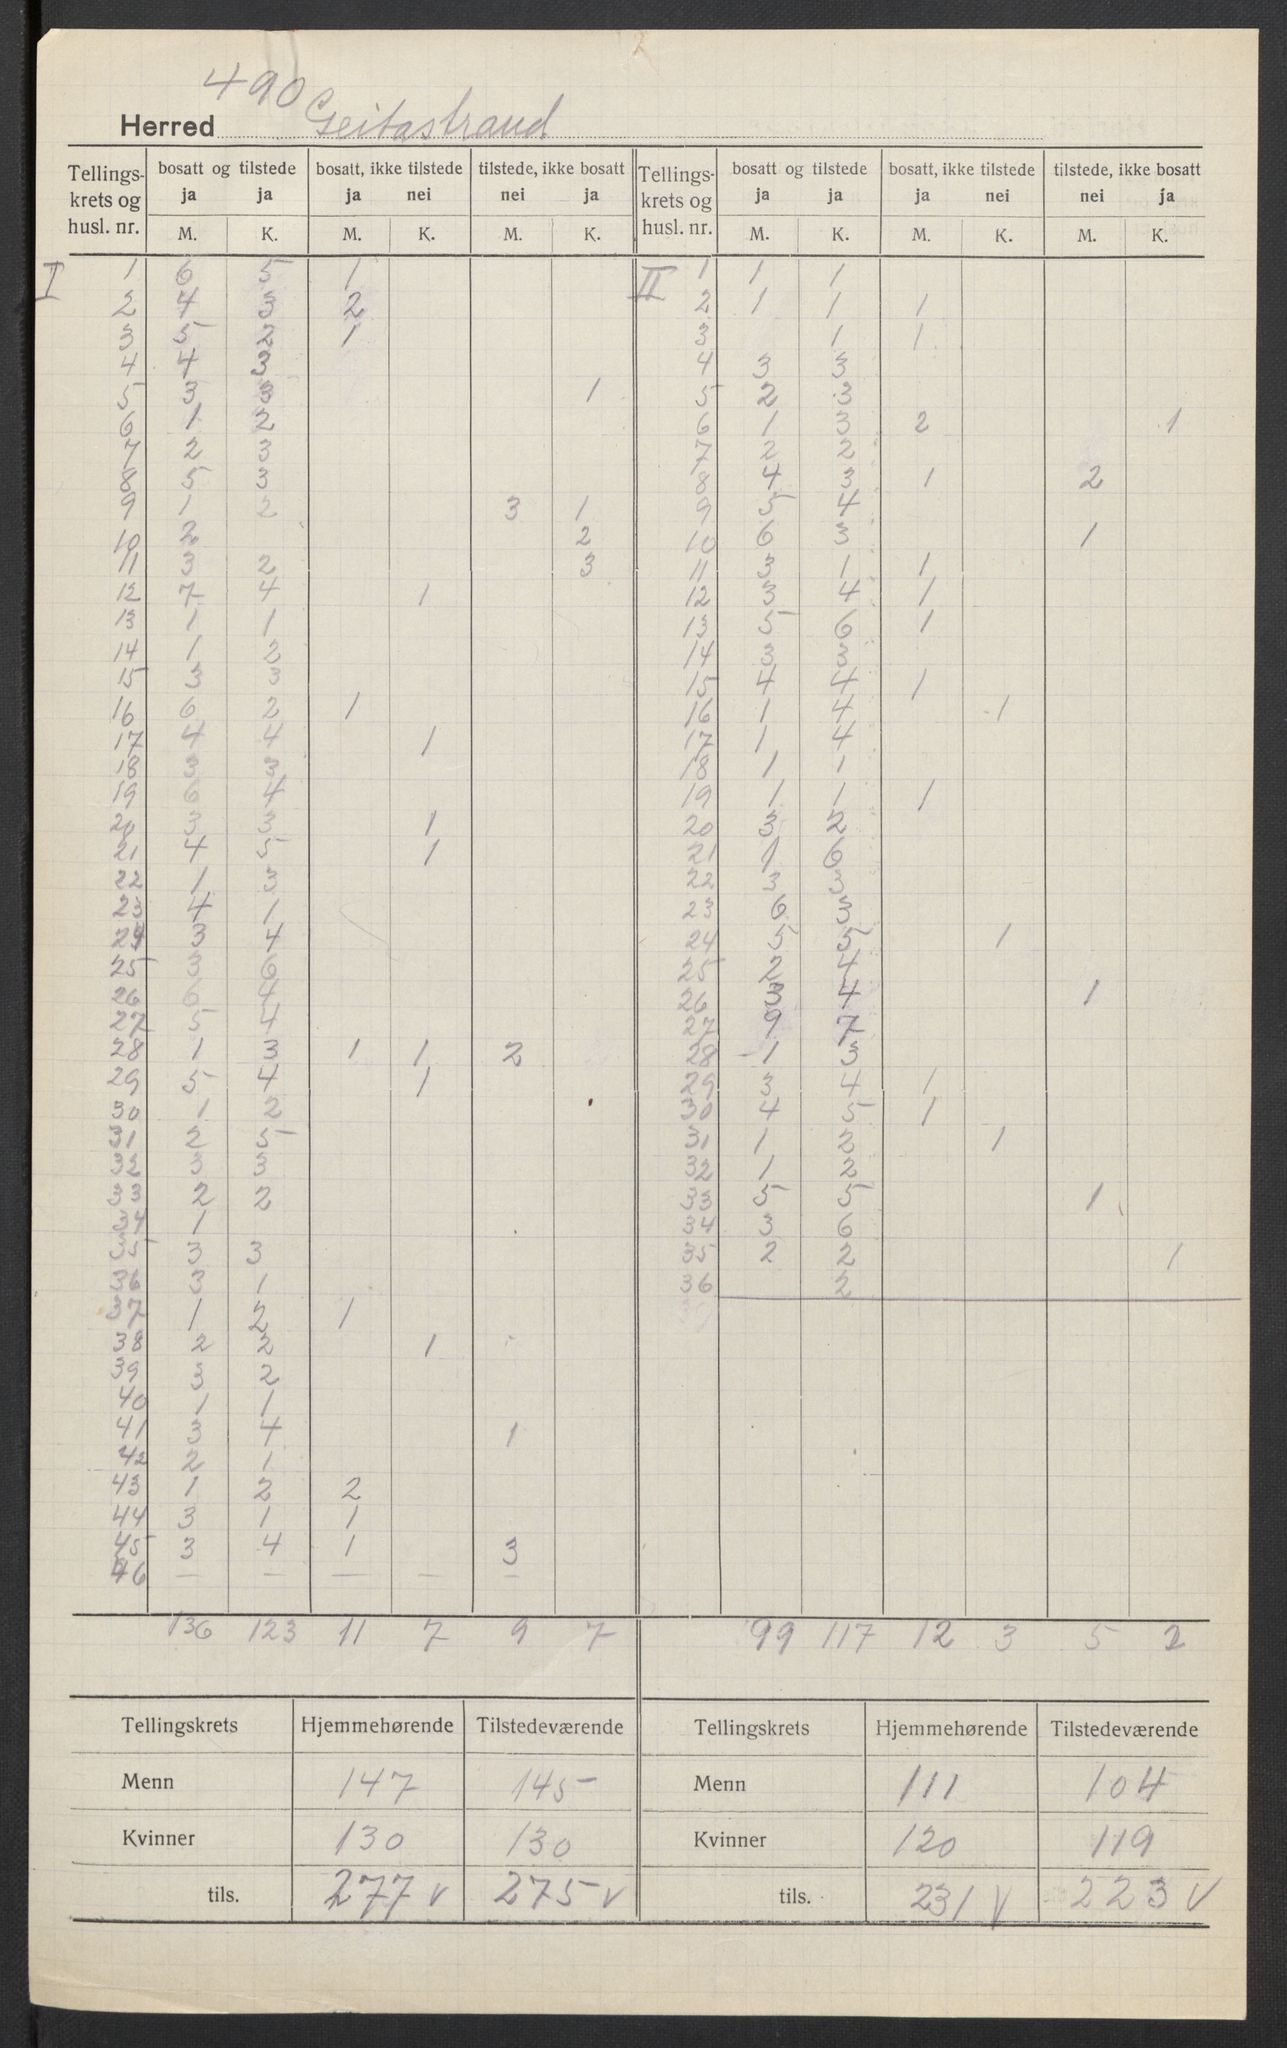 490
Herred Geitastrand
Tellings- krets og husl. nr. | bosatt og tilstede ja ja | bosatt, ikke tilstede ja nei | tilstede, ikke bosatt nei ja | Tellings- krets og husl. nr. | bosatt og tilstede ja ja | bosatt, ikke tilstede ja nei | tilstede, ikke bosatt nei ja
M. | K. | M. | K. | M. | K. | M. | K. | M. | K. | M. | K.
I 1 | 6 | 5 | 1 | | | | II 1 | 1 | 1 | | | |
2 | 4 | 3 | 2 | | | | 2 | 1 | 1 | 1 | | |
3 | 5 | 2 | 1 | | | | 3 | | 1 | 1 | | |
4 | 4 | 3 | | | | | 4 | 3 | 3 | | | |
5 | 3 | 3 | | | | 1 | 5 | 2 | 3 | | | |
6 | 1 | 2 | | | | | 6 | 1 | 3 | 2 | | | 1
7 | 2 | 3 | | | | | 7 | 2 | 2 | | | |
8 | 5 | 3 | | | | | 8 | 4 | 3 | 1 | | 2 |
9 | 1 | 2 | | | 3 | 1 | 9 | 5 | 4 | | | |
10 | 2 | | | | | 2 | 10 | 6 | 3 | | | 1 |
11 | 3 | 2 | | | | 3 | 11 | 3 | 1 | 1 | | |
12 | 7 | 4 | | 1 | | | 12 | 3 | 4 | 1 | | |
13 | 1 | 1 | | | | | 13 | 5 | 6 | 1 | | |
14 | 1 | 2 | | | | | 14 | 3 | 3 | | | |
15 | 3 | 3 | | | | | 15 | 4 | 4 | 1 | | |
16 | 6 | 2 | 1 | | | | 16 | 1 | 4 | | 1 | |
17 | 4 | 4 | | 1 | | | 17 | 1 | 4 | | | |
18 | 3 | 3 | | | | | 18 | 1 | 1 | | | |
19 | 6 | 4 | | | | | 19 | 1 | 1 | 1 | | |
20 | 3 | 3 | | 1 | | | 20 | 3 | 2 | | | |
21 | 4 | 5 | | 1 | | | 21 | 1 | 6 | | | |
22 | 1 | 3 | | | | | 22 | 3 | 3 | | | |
23 | 4 | 1 | | | | | 23 | 6 | 3 | | | |
24 | 3 | 4 | | | | | 24 | 5 | 5 | | 1 | |
25 | 3 | 6 | | | | | 25 | 2 | 4 | | | |
26 | 6 | 4 | | | | | 26 | 3 | 4 | | | 1 |
27 | 5 | 4 | | | | | 27 | 9 | 7 | | | |
28 | 1 | 3 | 1 | 1 | 2 | | 28 | 1 | 3 | | | |
29 | 5 | 4 | | 1 | | | 29 | 3 | 4 | 1 | | |
30 | 1 | 2 | | | | | 30 | 4 | 5 | 1 | | |
31 | 2 | 5 | | | | | 31 | 1 | 2 | | 1 | |
32 | 3 | 3 | | | | | 32 | 1 | 2 | | | |
33 | 2 | 2 | | | | | 33 | 5 | 5 | | | 1 |
34 | 1 | | | | | | 34 | 3 | 6 | | | |
35 | 3 | 3 | | | | | 35 | 2 | 2 | | | | 1
36 | 3 | 1 | | | | | 36 | | 2 | | | |
37 | 1 | 2 | 1 | | |
38 | 2 | 2 | | 1 | |
39 | 3 | 2 | | | |
40 | 1 | 1 | | | |
41 | 3 | 4 | | | 1 |
42 | 2 | 1 | | | |
43 | 1 | 2 | 2 | | |
44 | 3 | 1 | 1 | | |
45 | 3 | 4 | 1 | | 3 |
46 | — | — | — | — | — |
136 | 123 | 11 | 7 | 9 | 7 | 99 | 117 | 12 | 3 | 5 | 2
Tellingskrets | Hjemmehørende | Tilstedeværende | Tellingskrets | Hjemmehørende | Tilstedeværende
Menn | 147 | 145 | Menn | 111 | 104
Kvinner | 130 | 130 | Kvinner | 120 | 119
tils. | 277 v | 275 v | tils. | 231 v | 223 v